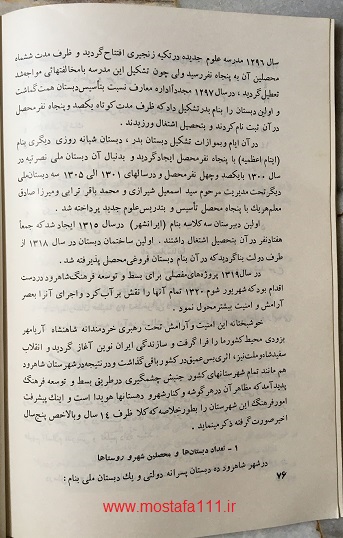 سال ۱۲۹۶ مدرسه علوم جدیده در تکیه زنجیری افتتاح گردید و ظرف مدت ششماه
محصلین آن به پنجاه نفر رسید ولی چون تشکیل این مدرسه با مخالفتهائی مواجه شد
تعطیل گردید، در سال ۱۲۹۷ مجدداً اداره معارف نسبت بتأسیس دبستان همت گماشت
و اولین دبستان را بنام بدر تشکیل داد که ظرف مدت کوتاه یکصد و پنجاه نفر محصل
در آن ثبت نام کردند و بتحصیل اشتغال ورزیدند.
در آن ایام و بموازات تشکیل دبستان بدر، دبستان شبانه روزی دیگری بنام
(ایتام اعظمیه) با پنجاه نفر محصل ایجاد گردید و بدنبال آن دبستان ملی نصرتیه در
سال ۱۳۰۰ با یکصد و چهل نفر محصل و در سالهای ۱۳۰۱ الی ۱۳۰۵ سه دبستان ملی
دیگر تحت مدیریت مرحوم سید اسمعیل شیرازی و محمد باقر ترابی و میرزا صادق
معلم هر یک با پنجاه محصل تأسیس و بتدریس علوم جدید پرداخته شد.
اولین دبیرستان سه کلاسه بنام (ایرانشهر) در سال ۱۳۱۵ ایجاد شد که جمعاً
هفتاد نفر در آن بتحصیل اشتغال داشتند. اولین ساختمان دبستان در سال ۱۳۱۸ از
طرف دولت بنا گردید که در آن بنام دبستان فروغی محصل پذیرفته شد.
در سال ۱۳۱۹ پروژه‌های مفصلی برای بسط و توسعه فرهنگ شاهرود در دست
اقدام بود که شهریور شوم ۱۳۲۰ تمام آنها را نقش بر آب کرد و اجرای آنرا بعصر
آرامش و امنیت بیشتر محول نمود.
خوشبختانه این امنیت و آرامش تحت رهبری خردمندانه شاهنشاه آریامهر
بزودی محیط کشور ما را فرا گرفت و سازندگی ایران نوین آغاز گردید و انقلاب
سفید شاه و ملت نیز، اثری بس عمیق در کشور باقی گذاشت و در نتیجه در شهرستان شاهرود
هم مانند تمام شهرستانهای کشور جنبش چشمگیری در طریق بسط و توسعه فرهنگ
پدید آمد که مظاهر آن در هر گوشه و کنار شهر و دهستانها هویدا است و اینک پیشرفت
امور فرهنگ این شهرستان را بطور خلاصه که کلا ظرف ۱۴ سال و بالاخص پنج سال
اخیر صورت گرفته ذکر مینماید.
۱ - تعداد دبستان‌ها و محصلین شهر و روستاها
در شهر شاهرود ده دبستان پسرانه دولتی و یك دبستان ملی بنام:
۷۶
www.mostafa111.ir